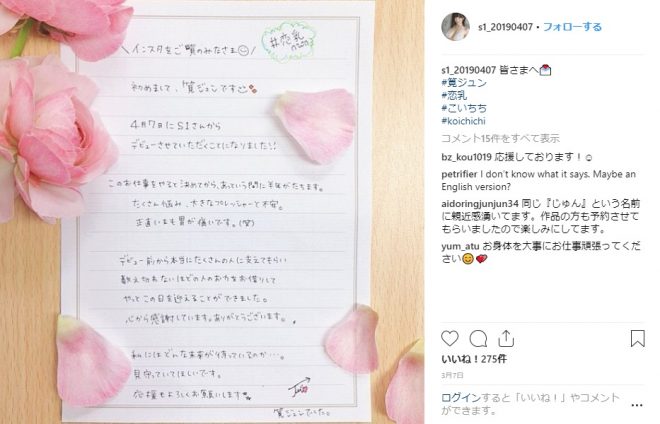 #恋乳
＼インスタをご覧のみなさま／
初めまして、筧ジュンです
4月7日にS1さんから
デビューさせていただくことになりました!!
このお仕事をやると決めてから、あっという間に半年がたちます。
たくさん悩み、大きなプレッシャーと不安。
正直いまも胃が痛いです。(笑)
デビュー前から本当にたくさんの人に支えてもらい
数え切れないほどの人のお力をお借りして
やっとこの日を迎えることができました。
心から感謝しています。ありがとうございます。
私にはどんな未来が待っているのか…。
見守っていてほしいです。
応援もよろしくお願いします
筧ジュンでした。
s1_20190407 • フォローする
s1_20190407 皆さまへ💌
#筧ジュン
#恋乳
#こいちち
#koichichi
コメント15件をすべて表示
bz_kou1019 応援しております！☺
petrifier I don't know what it says. Maybe an
English version?
aidoringjunjun34 同じ『じゅん』という名前
に親近感湧いてます。作品の方も予約させて
もらいましたので楽しみにしてます。
yum_atu お身体を大事にお仕事頑張ってくだ
さい😊💕
いいね！275件
3月7日
ログインすると「いいね！」やコメント
ができます。